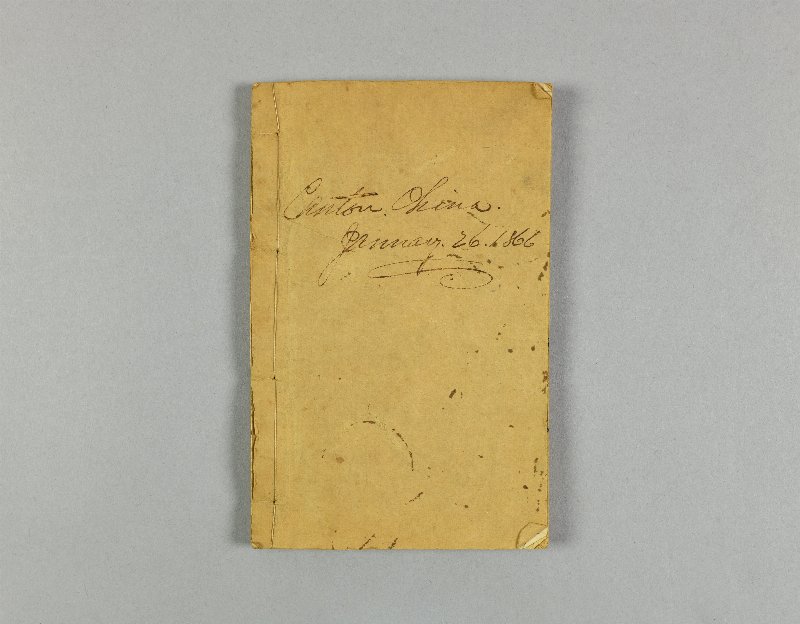 Canton. China.
January. 26. 1866